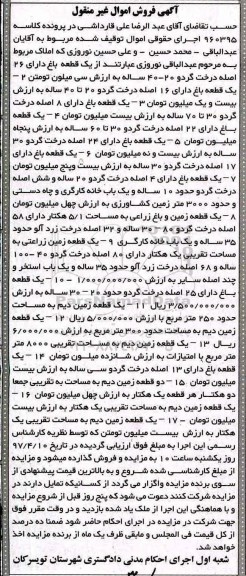 آگهی فروش اموال غیر منقول
حسب تقاضای آقای عبد الرضا علی قارداشی در پرونده کلاسه
۹۶۰۳۹۵ اجرای حقوقی اموال توقیف شده مربوط به آقایان
عبدالباقی – محمد حسین – و علی حسین نوروزی که املاک مربوط
به مرحوم عبدالباقی نوروزی عبارتند از یک قطعه باغ دارای ۲۶
اصله درخت گردو ۲۰-۴۰ ساله به ارزش سی میلیون تومتن ۲ –
یک قطعه باغ دارای ۱۶ اصله درخت گردو ۴۰ ساله به ارزش
بیست و یک میلیون تومان ۳ – یک قطعه باغ دارای ۸ اصله درخت
گردو ۳۰ تا ۷۰ ساله به ارزش بیست میلیون تومان ۴ – یک قطعه
باغ دارای ۲۲ اصله درخت گردو ۳۰ تا ۶۰ ساله به ارزش پنجاه
میلیون تومان ۵ – یک قطعه باغ دارای ۲۴ اصله درخت گردو ۳۰
ساله به ارزش بیست و نه میلیون تومان ۶ – یک قطعه باغ دارای
۱۷ اصله درخت گردو ۳۰ ساله به ارزش بیست وپنج میلیون تومان
۷ – یک قطعه باغ دارای ۴ اصله درخت گردو ۲۰ ساله و شش اصله
درخت گردو حدود ۱۰ ساله و یک باب خانه کارگری و چاه دستی
و حدود ۳۰۰۰ متر زمین کشاورزی به ارزش چهل میلیون تومان
۸ – یک قطعه زمین و باغ زراعی به مساحت ۵/۱ هکتار دارای ۵۸
اصله درخت گردو ۸۰-۳۰ ساله و ۳۲ اصله درخت زرد آلو حدود
۳۵ ساله و یک باب خانه کارگری ۹ – یک قطعه زمین زراعتی به
مساحت تقریبی یک هکتار دارای ۸۰ اصله گردو ۴۰-۱۰۰
ساله و ۶۸ اصله درخت زرد آلو حدود ۳۵ ساله و یک باب استخر و
چند اصله سایر به ارزش ۱/۰۰۰/۰۰۰/۰۰۰ – ۱۰ – یک قطعه
باغ دارای ۲۵ اصله درخت گردو حدود ۲۰-۳۰ ساله به ارزش
۳/۵۰۰/۰۰۰/۰۰۰ ریال ۱۱ – یک قطعه زمین دیم به مساحت
حدود ۲۵۰ متر مربع با ارزش ۵/۰۰۰/۰۰۰ ریال ۱۲ – یک قطعه
زمین دیم به مساحت حدود ۳۰۰ متر مربع با ارزش ۶/۰۰۰/۰۰۰
ریال ۱۳ – یک قطعه زمین دیم به مساحت تقریبی ۸۰۰۰ متر
متر مربع با امتیازات به ارزش شانزده میلیون تومان ۱۴ – یک
قطعه باغ دارای ۱۳ اصله درخت گردو سی ساله به ارزش بیست
میلیون تومان ۱۵ – دو قطعه زمین دیم به مساحت به تقریبی جمعا
دو هکتار هر قطعه یک هکتار به ارزش چهل میلیون تومان ۱۶ –
یک قطعه زمین دیم به مساحت تقریبی یک هکتار به ارزش بیست
میلیون تومان – ۱۷ – یک قطعه زمین دیم به مساحت تقریبی یک
هکتار به ارزش بیست میلیون تومتن که توسط نظریه کارشناس
رسمی این اجرا به مبلغ فوق ارزیابی گردیده در تاریخ ۹۷/۴/۱۰
روز یکشنبه ساعت ۱۰ به مزایده و فروش گذارده میشود و مزایده
از مبلغ کارشناسی شده شروع و به بالاترین قیمت پیشنهادی از
سوی برنده مزایده واگزار می گردد از کسانیکه تمایل دارند در
مزایده شرکت کنند دعوت می شود که پنج روز قبل از شروع مزایده
و با هماهنگی این اجرا از ملک یاد شده بازدید و در وقت مقرر فوق
جهت شرکت در مزایده در اجرای احکام حاضر شود ضمنا ده درصد
از کل قیمت فی المجلس و مابقی ظرف یک ماه از برنده مزایده اخذ
خواهد شد.
شعبه اول اجرای احکام مدنی دادگستری شهرستان تویسرکان